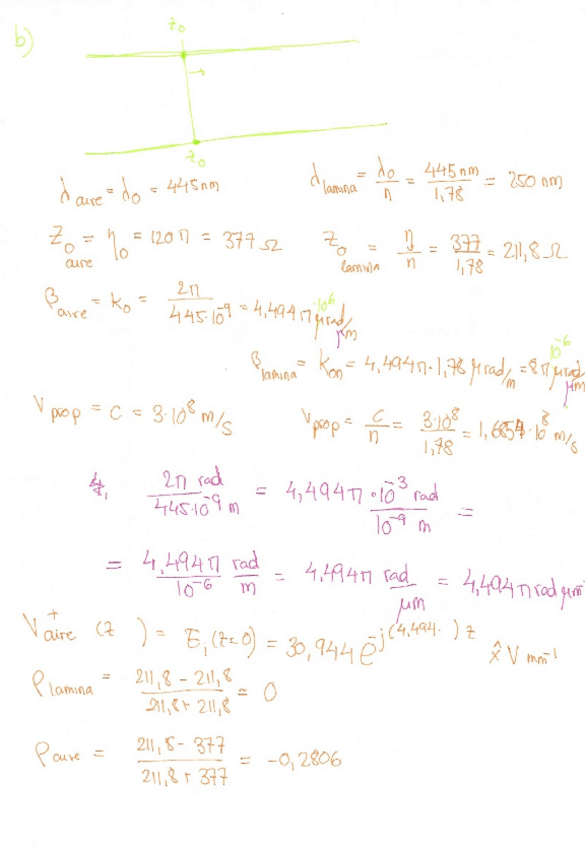 b)
z₀
z₀
λ aire = λ₀ = 445 nm
λ lamina = λ₀/n = 445 nm/1,78 = 250 nm
Z₀ aire = η₀ = 120 π = 377 Ω
Z₀ lamina = η/n = 377/1,78 = 211,8 Ω
β aire = k₀ = 2π/445·10⁻⁹ = 4,494 π ·10⁶ μrad/m μm
β lamina = k₀n = 4,494π·1,78 μrad/m = 8π 10⁻⁶ μrad μm
V prop = c = 3·10⁸ m/s
V prop = c/n = 3·10⁸/1,78 = 1,6854·10⁸ m/s
2π rad/445·10⁻⁹ m = 4,494π·10⁻³ rad/10⁻⁹ m =
= 4,494π/10⁻⁶ rad/m = 4,494π rad/μm = 4,494π rad μm⁻¹
V⁺ aire (z ) = E₁(z=0) = 30,944 e^-j(4,494. )z x̂ V mm⁻¹
ρ lamina = 211,8 - 211,8/211,8 + 211,8 = 0
ρ aire = 211,8 - 377/211,8 + 377 = -0,2806